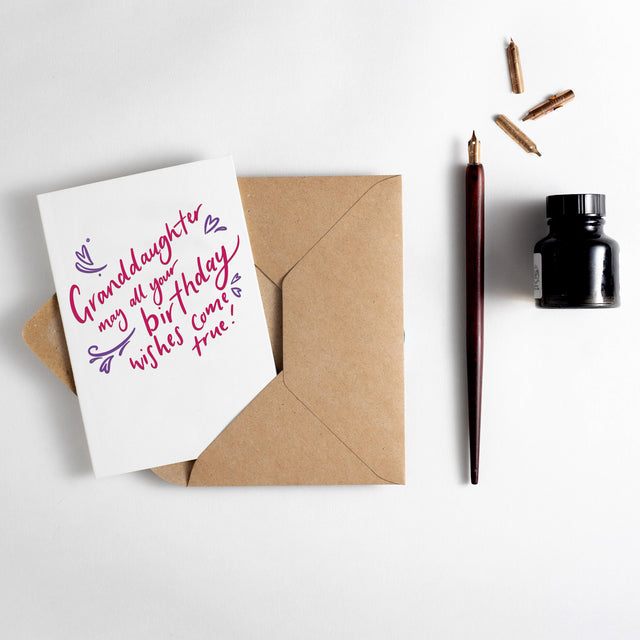 Granddaughter
may all your
birthday
wishes come
true!